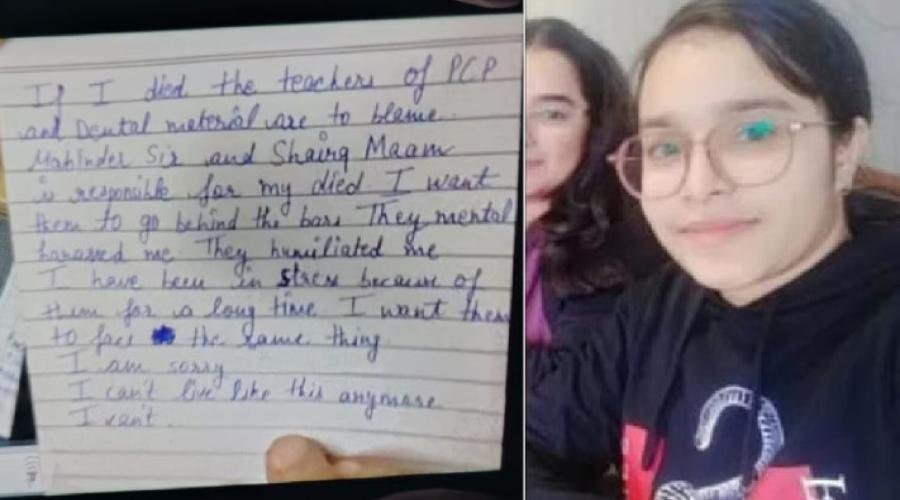 If I died the teachers of PCP
and Dental material are to blame.
Mahinder Sir and Shairg Maam
is responsible for my died. I want
them to go behind the bars They mental
harassed me. They humiliated me
I have been in stress because of
them for a long time. I want them
to face the same thing
I am sorry
I can't live like this anymore
I can't.